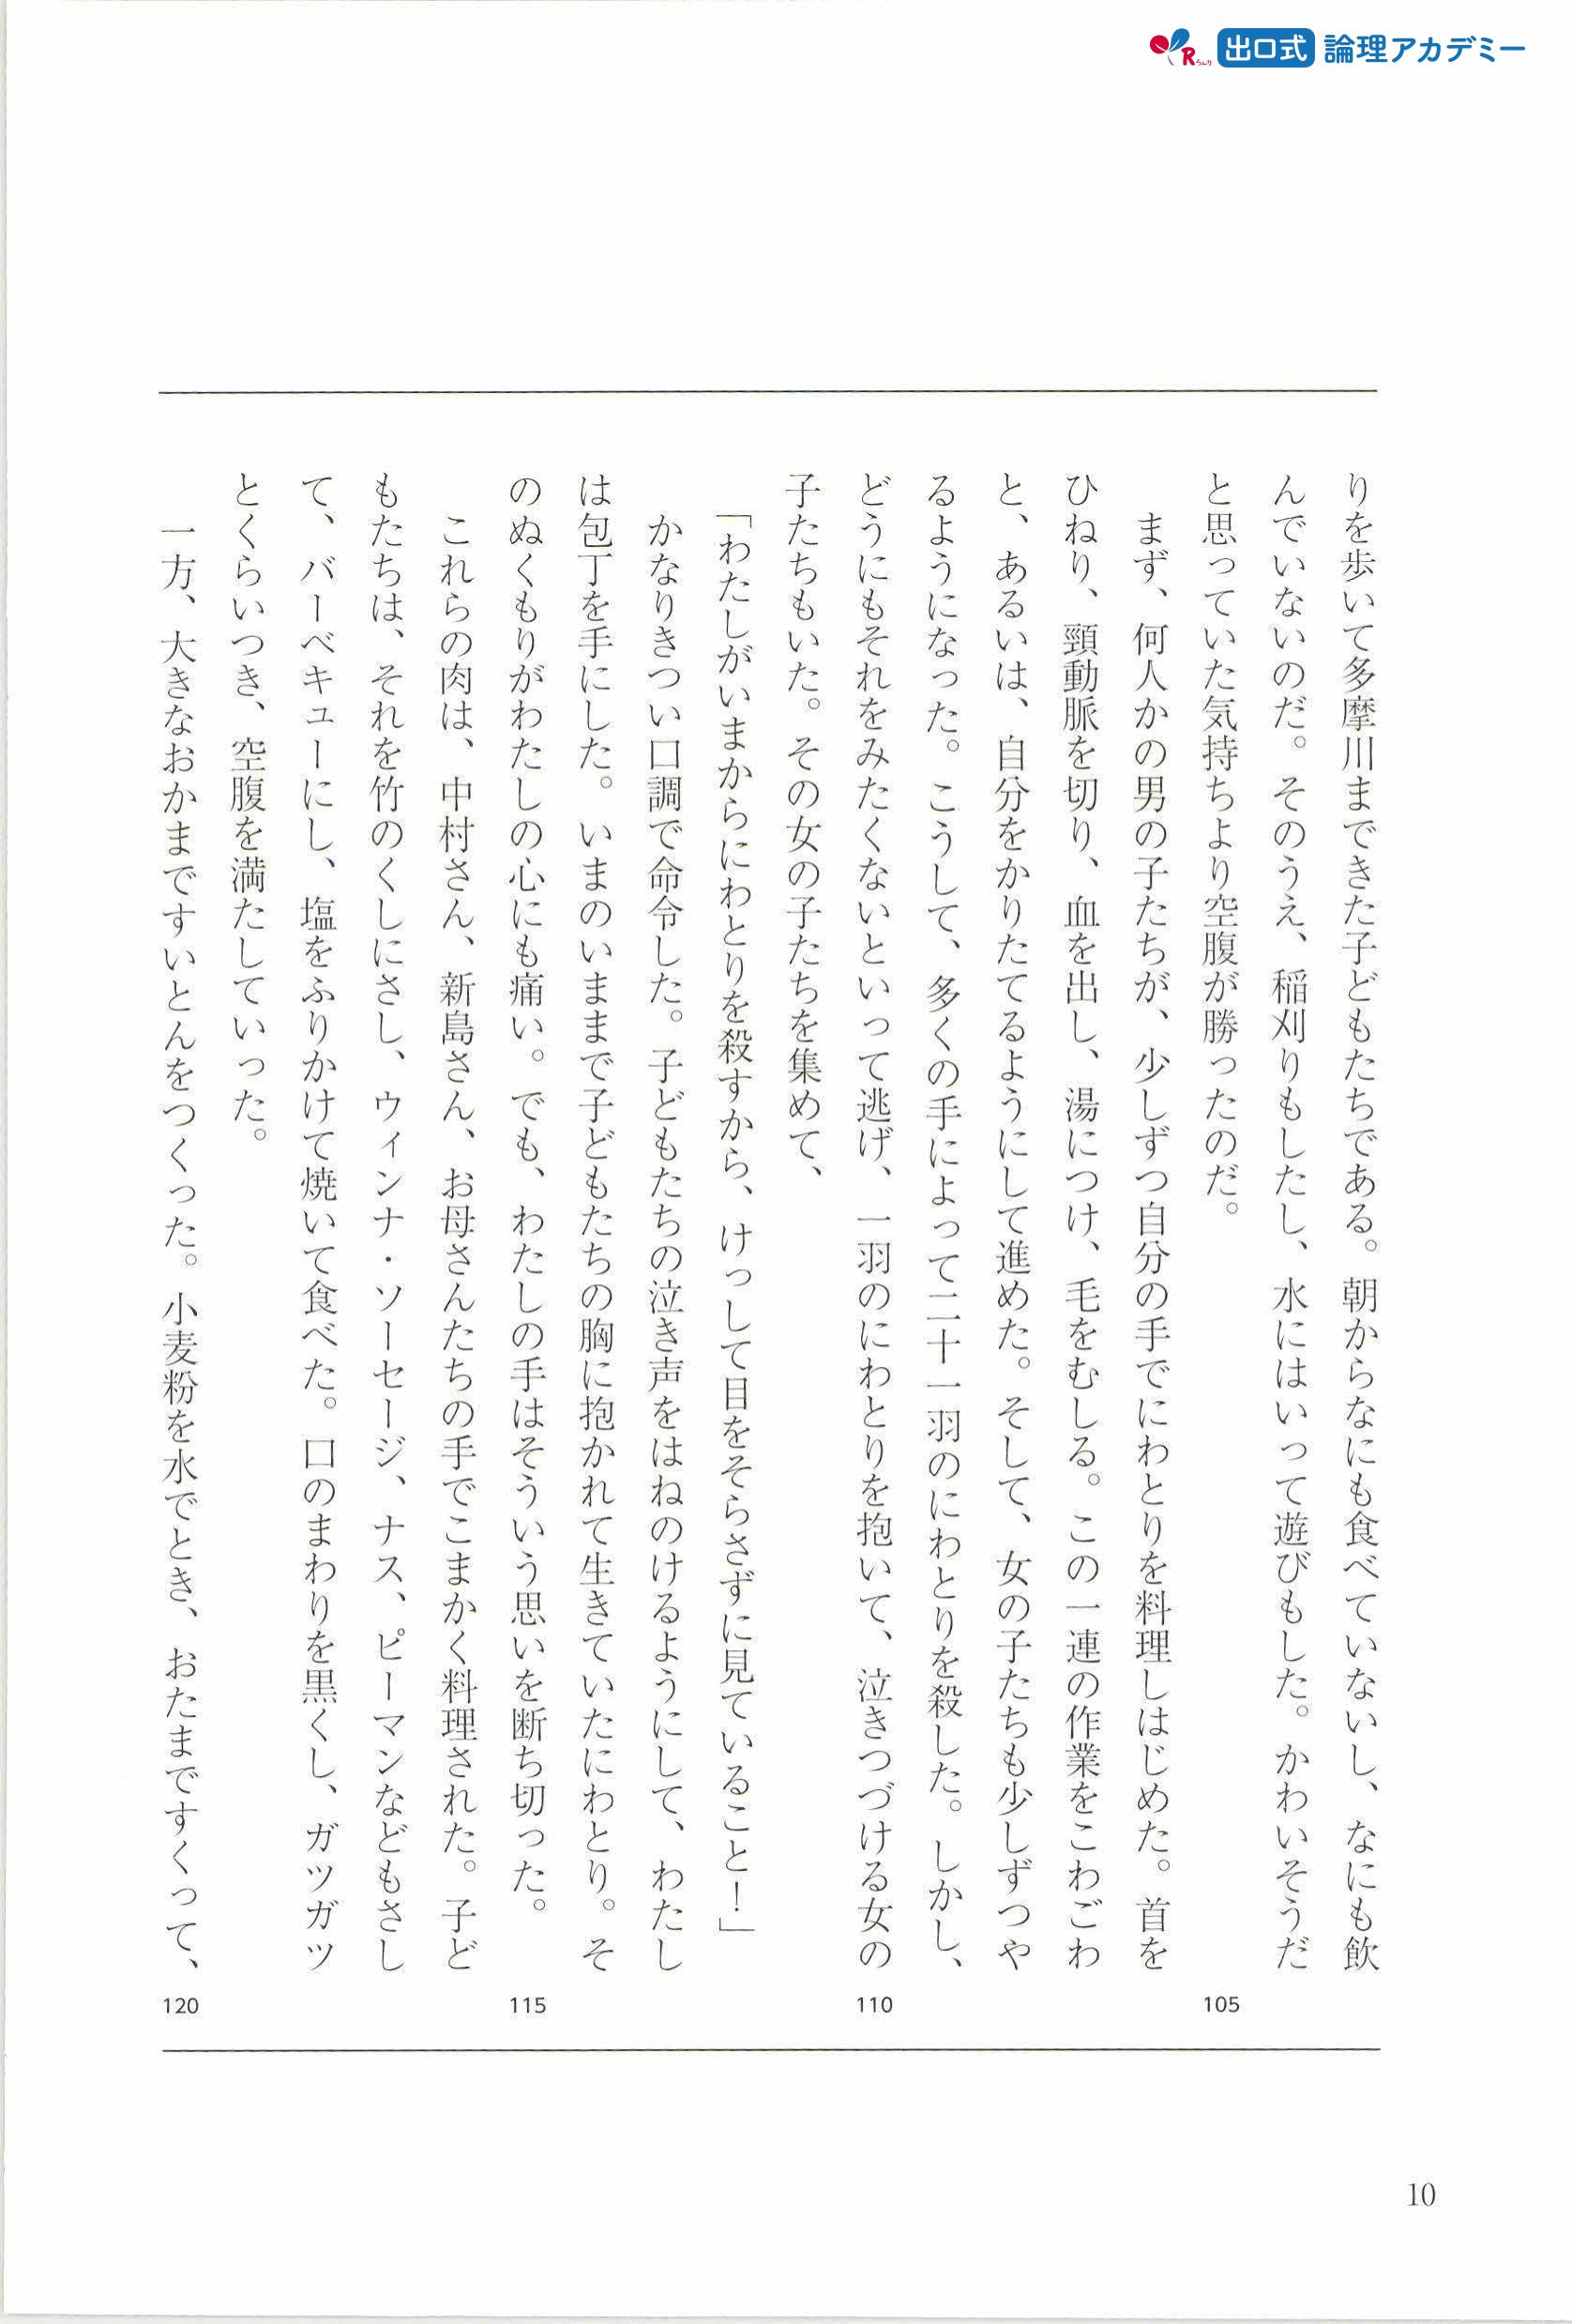 Rろんり 出口式 論理アカデミー
りを歩いて多摩川まできた子どもたちである。朝からなにも食べていないし、なにも飲
んでいないのだ。そのうえ、稲刈りもしたし、水にはいって遊びもした。かわいそうだ
と思っていた気持ちより空腹が勝ったのだ。
まず、何人かの男の子たちが、少しずつ自分の手でにわとりを料理しはじめた。首を
ひねり、頸動脈を切り、血を出し、湯につけ、毛をむしる。この一連の作業をこわごわ
と、あるいは、自分をかりたてるようにして進めた。そして、女の子たちも少しずつや
るようになった。こうして、多くの手によって二十一羽のにわとりを殺した。しかし、
どうにもそれをみたくないといって逃げ、一羽のにわとりを抱いて、泣きつづける女の
子たちもいた。その女の子たちを集めて、
「わたしがいまからにわとりを殺すから、けっして目をそらさずに見ていること！」
かなりきつい口調で命令した。子どもたちの泣き声をはねのけるようにして、わたし
は包丁を手にした。いまのいままで子どもたちの胸に抱かれて生きていたにわとり。そ
のぬくもりがわたしの心にも痛い。でも、わたしの手はそういう思いを断ち切った。
これらの肉は、中村さん、新島さん、お母さんたちの手でこまかく料理された。子ど
もたちは、それを竹のくしにさし、ウィンナ・ソーセージ、ナス、ピーマンなどもさし
て、バーベキューにし、塩をふりかけて焼いて食べた。口のまわりを黒くし、ガツガツ
とくらいつき、空腹を満たしていった。
一方、大きなおかまですいとんをつくった。小麦粉を水でとき、おたまですくって、
105
110
115
120
10